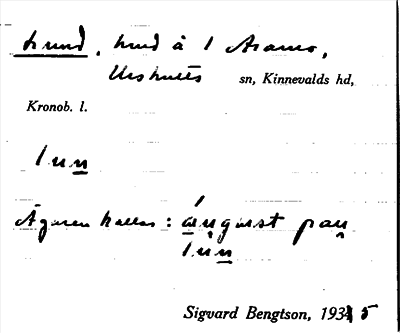 Lund, hmd å 1 Aramo,
Urshults sn, Kinnevalds hd,
Kronob. l.
lun
Ägaren kallas: ángust pau
lun
Sigvard Bengtson, 1935